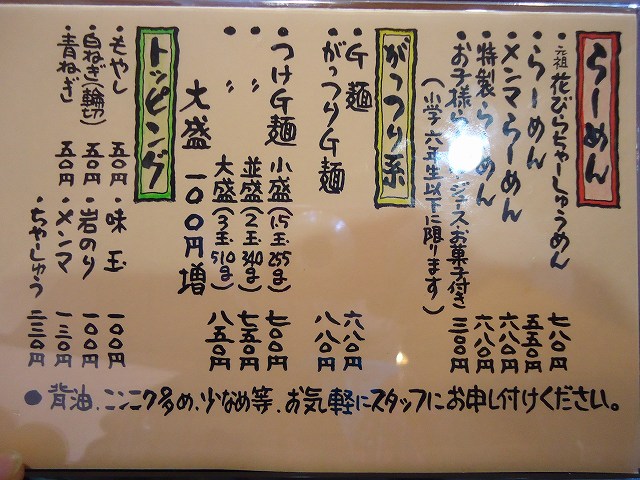 らーめん
・元祖 花びらちゃーしゅうめん 七八〇円
・らーめん 五五〇円
・メンマらーめん 六八〇円
・特製らーめん 六八〇円
・お子様ら ジュース・お菓子付き 三〇〇円
(小学六年生以下に限ります)
がっつり系
・G麺 六八〇円
・がっつりG麺 八八〇円
・つけG麺 小盛(1.5玉 255g) 七〇〇円
・〃 並盛(2玉 340g) 七五〇円
・〃 大盛(3玉 510g) 八五〇円
大盛 一〇〇円増
トッピング
・もやし 五〇円
・白ねぎ(輪切) 五〇円
・青ねぎ 五〇円
・味玉 一〇〇円
・岩のり 一〇〇円
・メンマ 一三〇円
・ちゃーしゅう 二三〇円
●背油、ニンニク多め、少なめ等、お気軽にスタッフにお申し付けください。